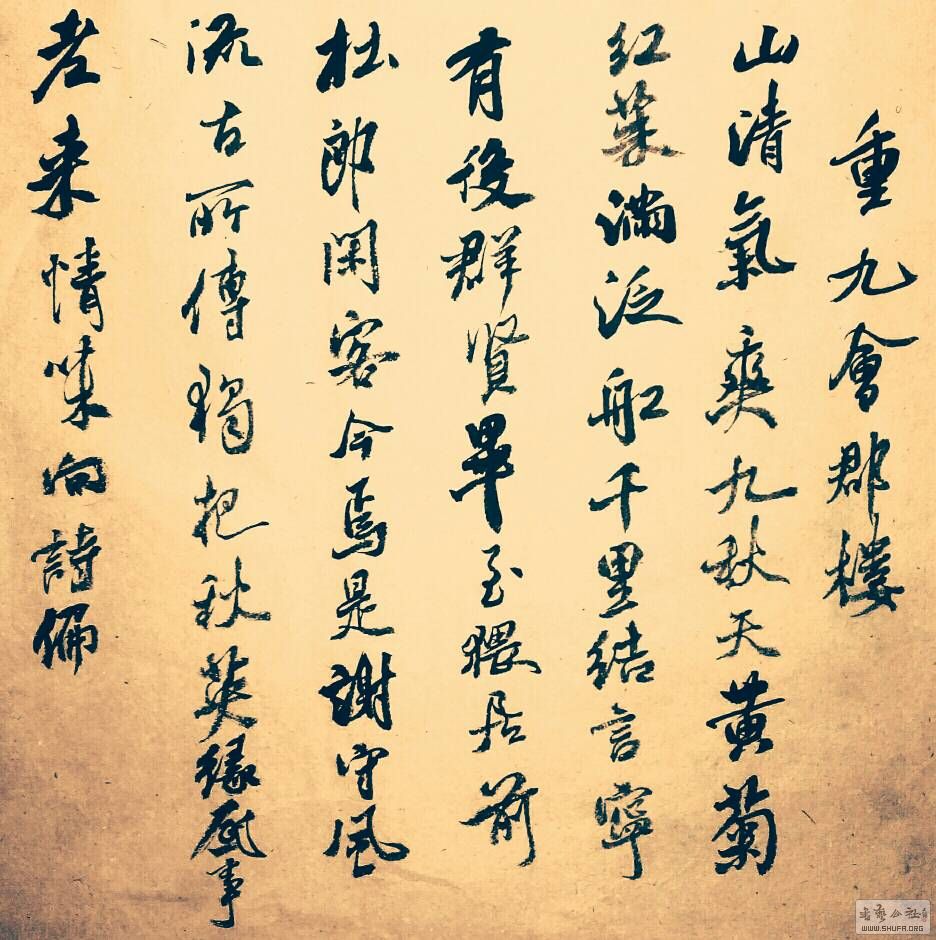 重九會郡樓
山清氣爽九秋天黄菊
紅茱滿泛船千里結言寧
有後群賢畢至猥居前
杜郎閑客今焉是謝守風
流古所傳獨把秋英緣底事
老來情味向詩偏
WWW.SHUFA.ORG